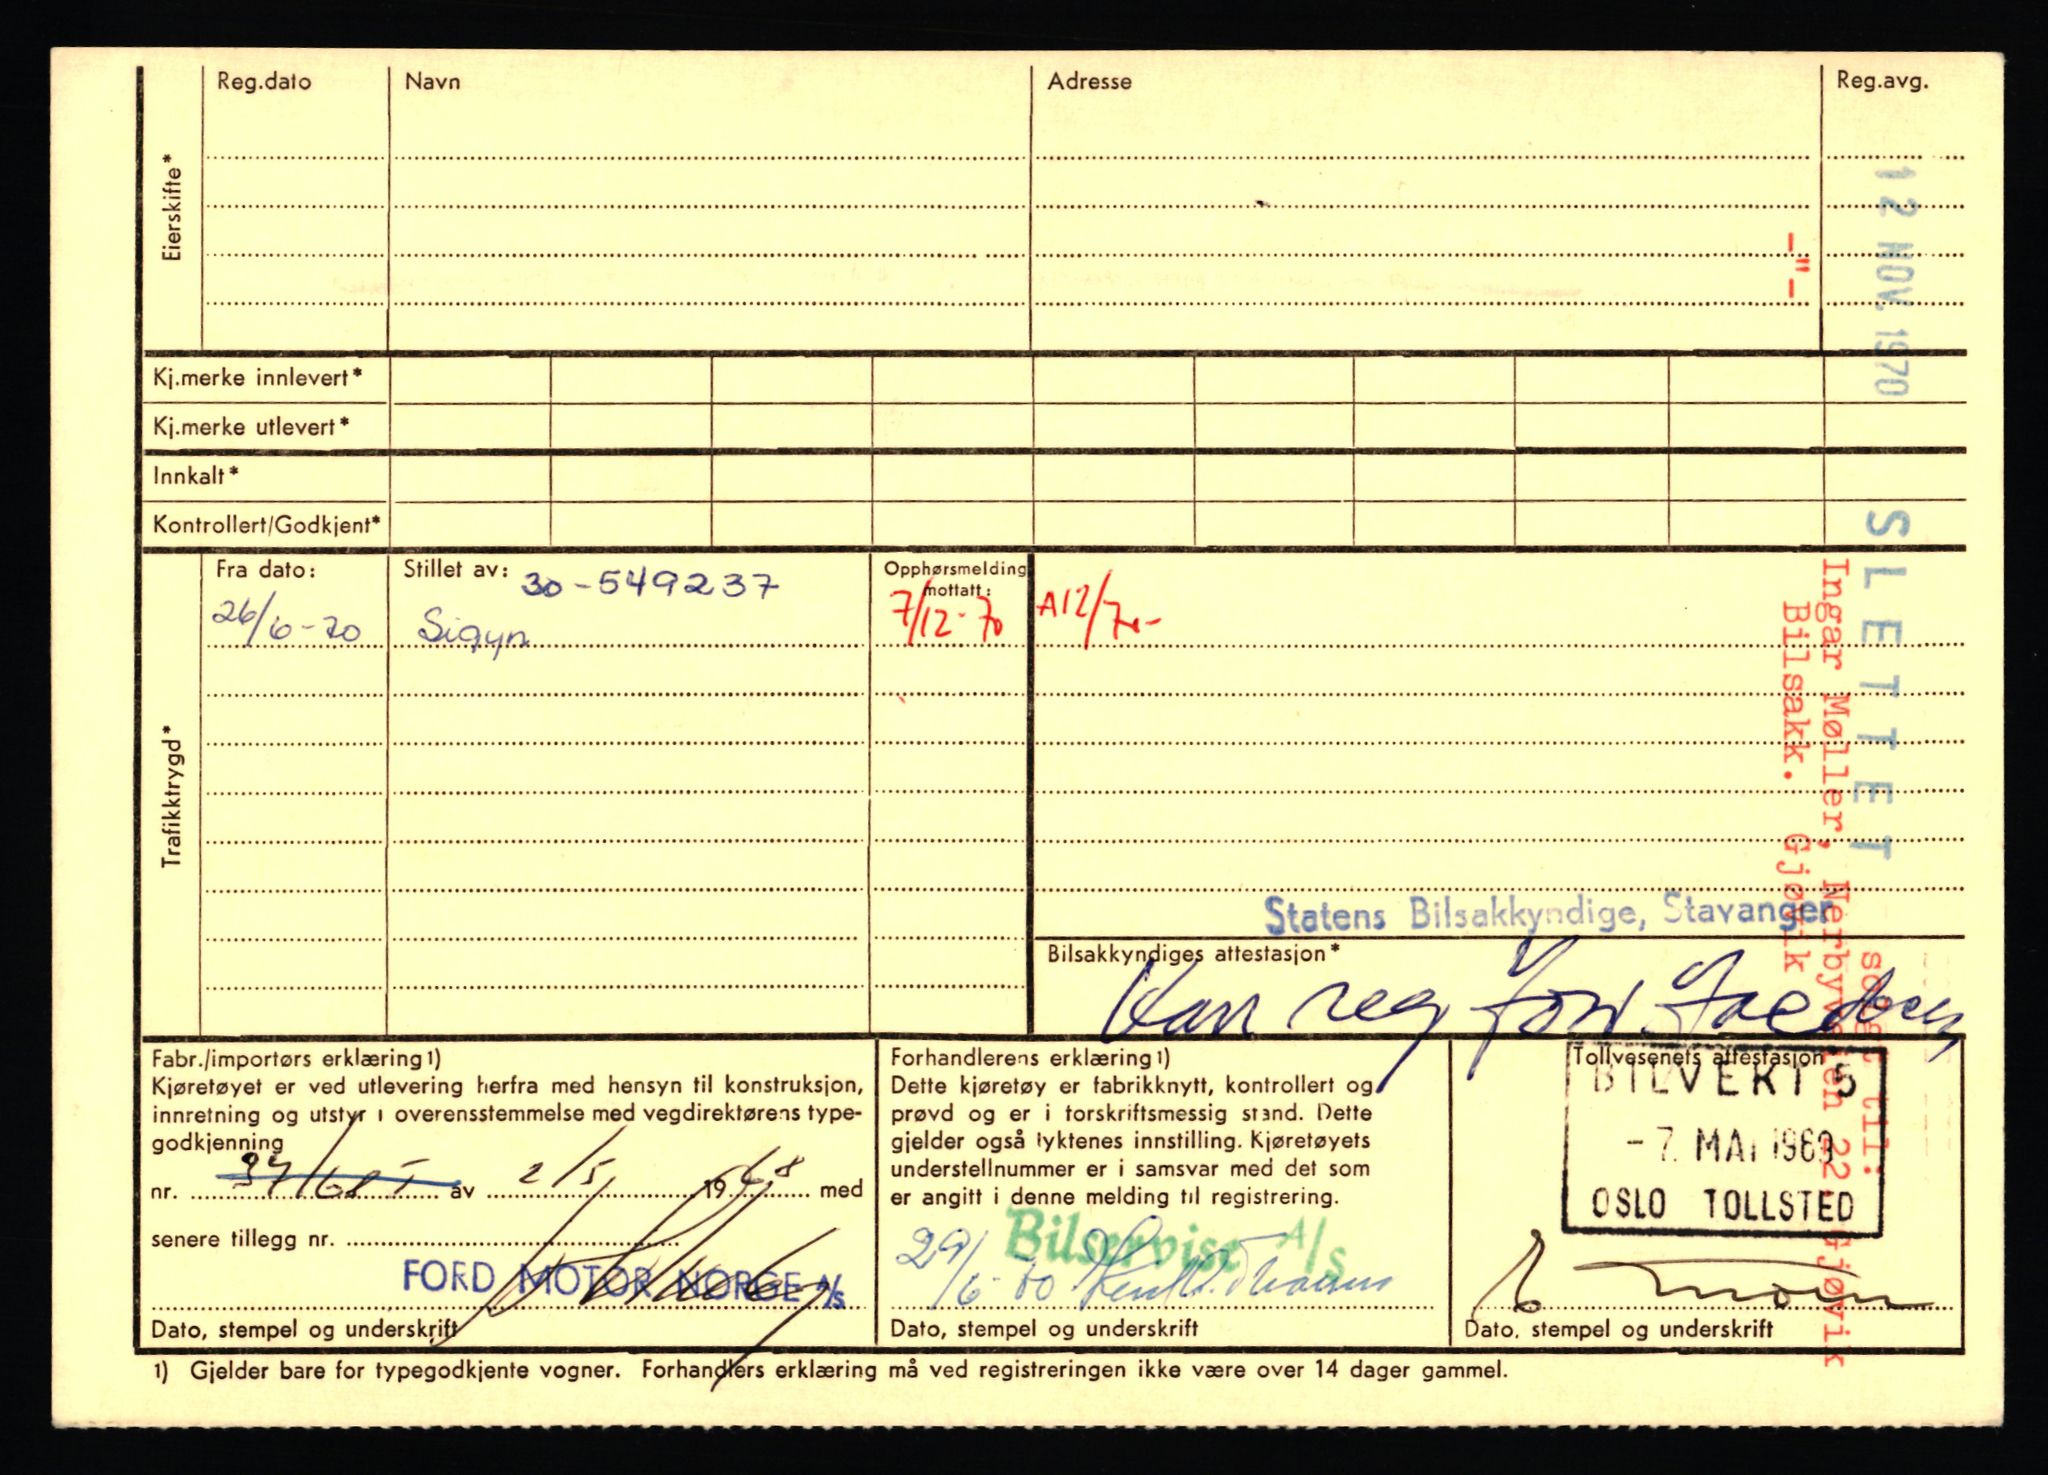 Eierskifte*
Reg.dato
Navn
Adresse
Reg.avg.
12 NOV. 1970
-"-
Kj.merke innlevert*
Kj.merke utlevert*
Innkalt*
Kontrollert/Godkjent*
SLETTET
solgt til:
Ingar Møller, Nerbyveien 22, Gjøvik
Bilsakk. Gjøvik
Trafikktrygd*
Fra dato:
Stillet av: 30-549237
Opphørsmelding
mottatt:
26/6-70
Sigyn
7/12-70
A12/70-
Statens Bilsakkyndige, Stavanger
Bilsakkyndiges attestasjon*
Kan reg
Fabr./importørs erklæring1)
Kjøretøyet er ved utlevering herfra med hensyn til konstruksjon,
innretning og utstyr i overensstemmelse med vegdirektørens type-
godkjenning
nr. 37/68 I av 2/5 1968 med
senere tillegg nr.
FORD MOTOR NORGE A/S
Dato, stempel og underskrift
Forhandlerens erklæring1)
Dette kjøretøy er fabrikknytt, kontrollert og
prøvd og er i forskriftsmessig stand. Dette
gjelder også lyktenes innstilling. Kjøretøyets
understellnummer er i samsvar med det som
er angitt i denne melding til registrering.
Bilservise A/S
29/6-70
Dato, stempel og underskrift
Tollvesenets attestasjon
BILVEKT 5
-7. MAI 1969
OSLO TOLLSTED
Dato, stempel og underskrift
1) Gjelder bare for typegodkjente vogner. Forhandlers erklæring må ved registreringen ikke være over 14 dager gammel.